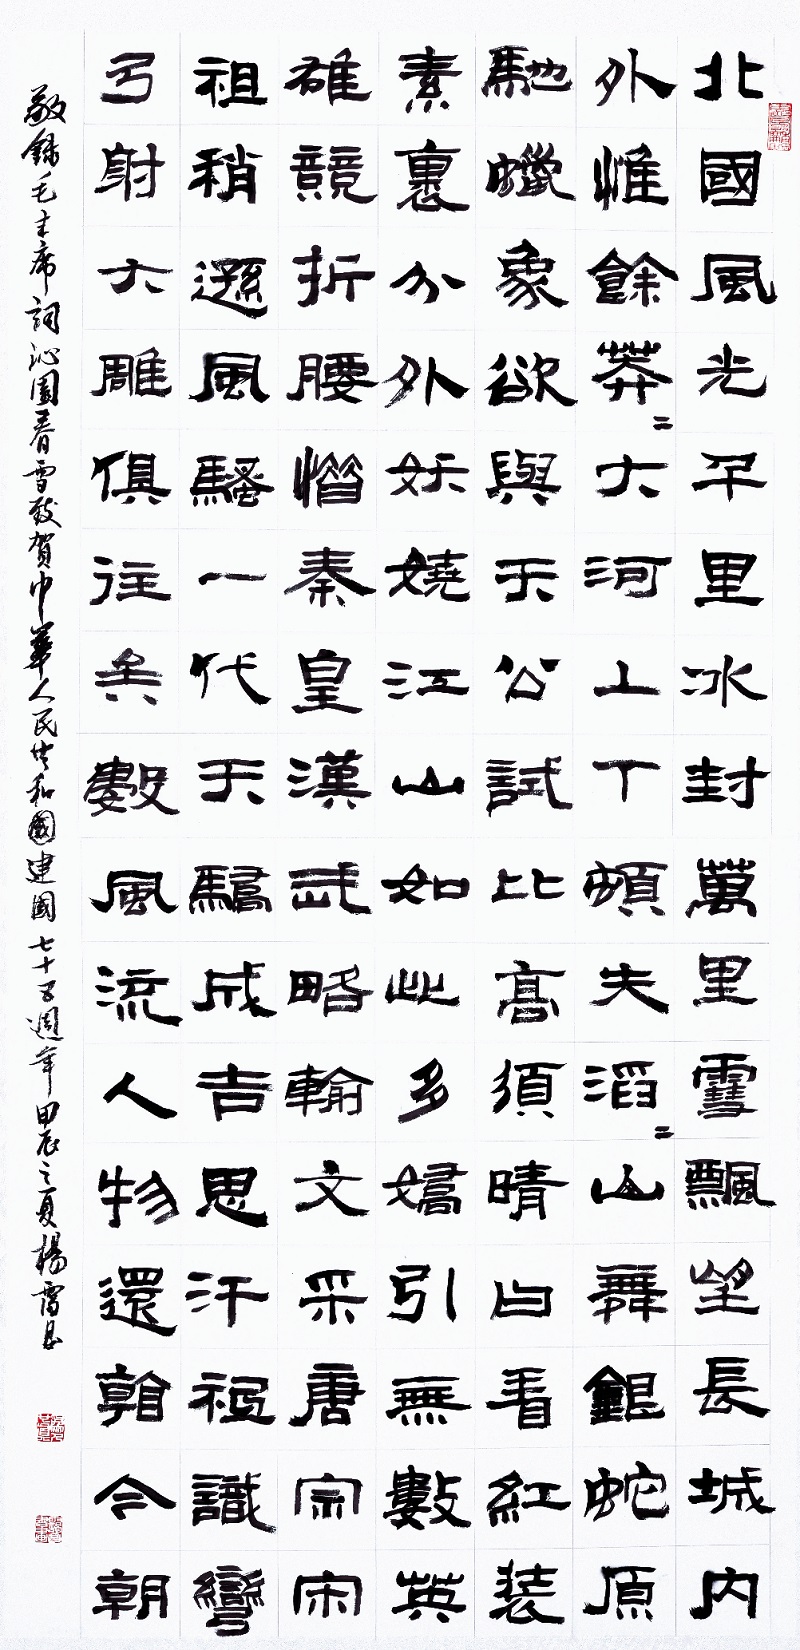 北國風光千里冰封萬里雪飄望長城內
外惟餘莽〻大河上下頓失滔〻山舞銀蛇原
馳蠟象欲與天公試比高須晴日看紅裝
素裹分外妖嬈江山如此多嬌引無數英
雄競折腰惜秦皇漢武略輸文采唐宗宋
祖稍遜風騷一代天驕成吉思汗祗識彎
弓射大雕俱往矣數風流人物還看今朝
敬錄毛主席詞沁園春雪致賀中華人民共和國建國七十五週年甲辰之夏楊